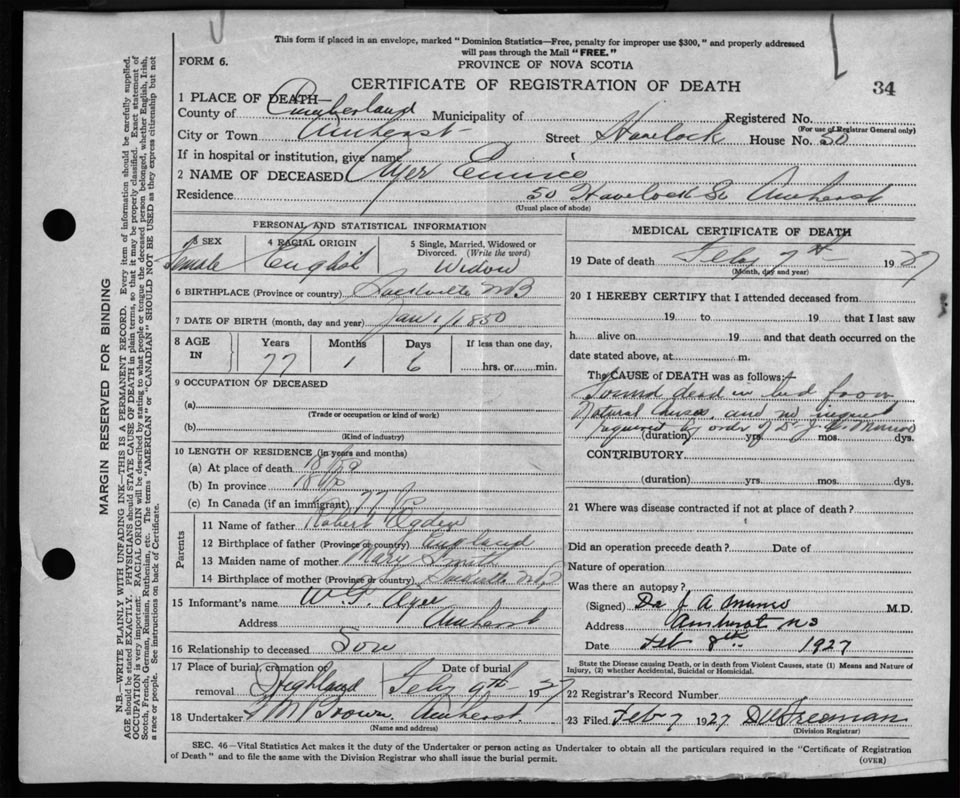 This form if placed in an envelope, marked "Dominion Statistics—Free, penalty for improper use $300," and properly addressed
will pass through the Mail "FREE."
FORM 6.
PROVINCE OF NOVA SCOTIA
CERTIFICATE OF REGISTRATION OF DEATH
34
1 PLACE OF DEATH—
County of Cumberland Municipality of Registered No.
(For use of Registrar General only)
City or Town Amherst Street Havelock House No. 50
If in hospital or institution, give name
2 NAME OF DECEASED Ayer Eunice
Residence 50 Havelock St Amherst
(Usual place of abode)
PERSONAL AND STATISTICAL INFORMATION
3 SEX 4 RACIAL ORIGIN 5 Single, Married, Widowed or Divorced. (Write the word)
Female English Widow
6 BIRTHPLACE (Province or country) Sackville NB
7 DATE OF BIRTH (month, day and year) Jan 1/1850
8 AGE IN Years Months Days If less than one day,
77 1 6 hrs. or min.
9 OCCUPATION OF DECEASED
(a)
(Trade or occupation or kind of work)
(b)
(Kind of industry)
10 LENGTH OF RESIDENCE (in years and months)
(a) At place of death 18
(b) In province 18
(c) In Canada (if an immigrant) 77
Parents
11 Name of father Robert Ogden
12 Birthplace of father (Province or country) England
13 Maiden name of mother Mary Smith
14 Birthplace of mother (Province or country) Sackville NB
15 Informant's name W. Ayer
Address Amherst
16 Relationship to deceased Son
17 Place of burial, cremation or removal Highland Date of burial Feby 9th 1927
18 Undertaker Brown, Amherst
(Name and address)
MEDICAL CERTIFICATE OF DEATH
19 Date of death Feby 7th 1927
(Month, day and year)
20 I HEREBY CERTIFY that I attended deceased from
19 to 19 that I last saw
h alive on 19 and that death occurred on the
date stated above, at m.
The CAUSE of DEATH was as follows:
Found dead in bed from
Natural Causes, and no inquest
required by order of Dr J. A. Munro
(duration) yrs. mos. dys.
CONTRIBUTORY
(duration) yrs. mos. dys.
21 Where was disease contracted if not at place of death?
Did an operation precede death? Date of
Nature of operation
Was there an autopsy?
(Signed) Dr J A Munro M.D.
Address Amherst NS
Date Feb 8th 1927
State the Disease causing Death, or in death from Violent Causes, state (1) Means and Nature of
Injury, (2) whether Accidental, Suicidal or Homicidal.
22 Registrar's Record Number
23 Filed Feb 7 1927 Freeman
(Division Registrar)
SEC. 46—Vital Statistics Act makes it the duty of the Undertaker or person acting as Undertaker to obtain all the particulars required in the "Certificate of Registration
of Death" and to file the same with the Division Registrar who shall issue the burial permit.
(OVER)
MARGIN RESERVED FOR BINDING
N.B.—WRITE PLAINLY WITH UNFADING INK—THIS IS A PERMANENT RECORD. Every item of information should be carefully supplied.
AGE should be stated EXACTLY. PHYSICIANS should STATE CAUSE OF DEATH in plain terms, so that it may be properly classified. Exact statement of
OCCUPATION is very important. RACIAL ORIGIN will be described by stating to what people or tongue the deceased person belonged, whether English, Irish,
Scotch, French, German, Russian, Ruthenian, etc. The terms "AMERICAN" or "CANADIAN" SHOULD NOT BE USED as they express citizenship but not
a race or people. See instructions on back of Certificate.